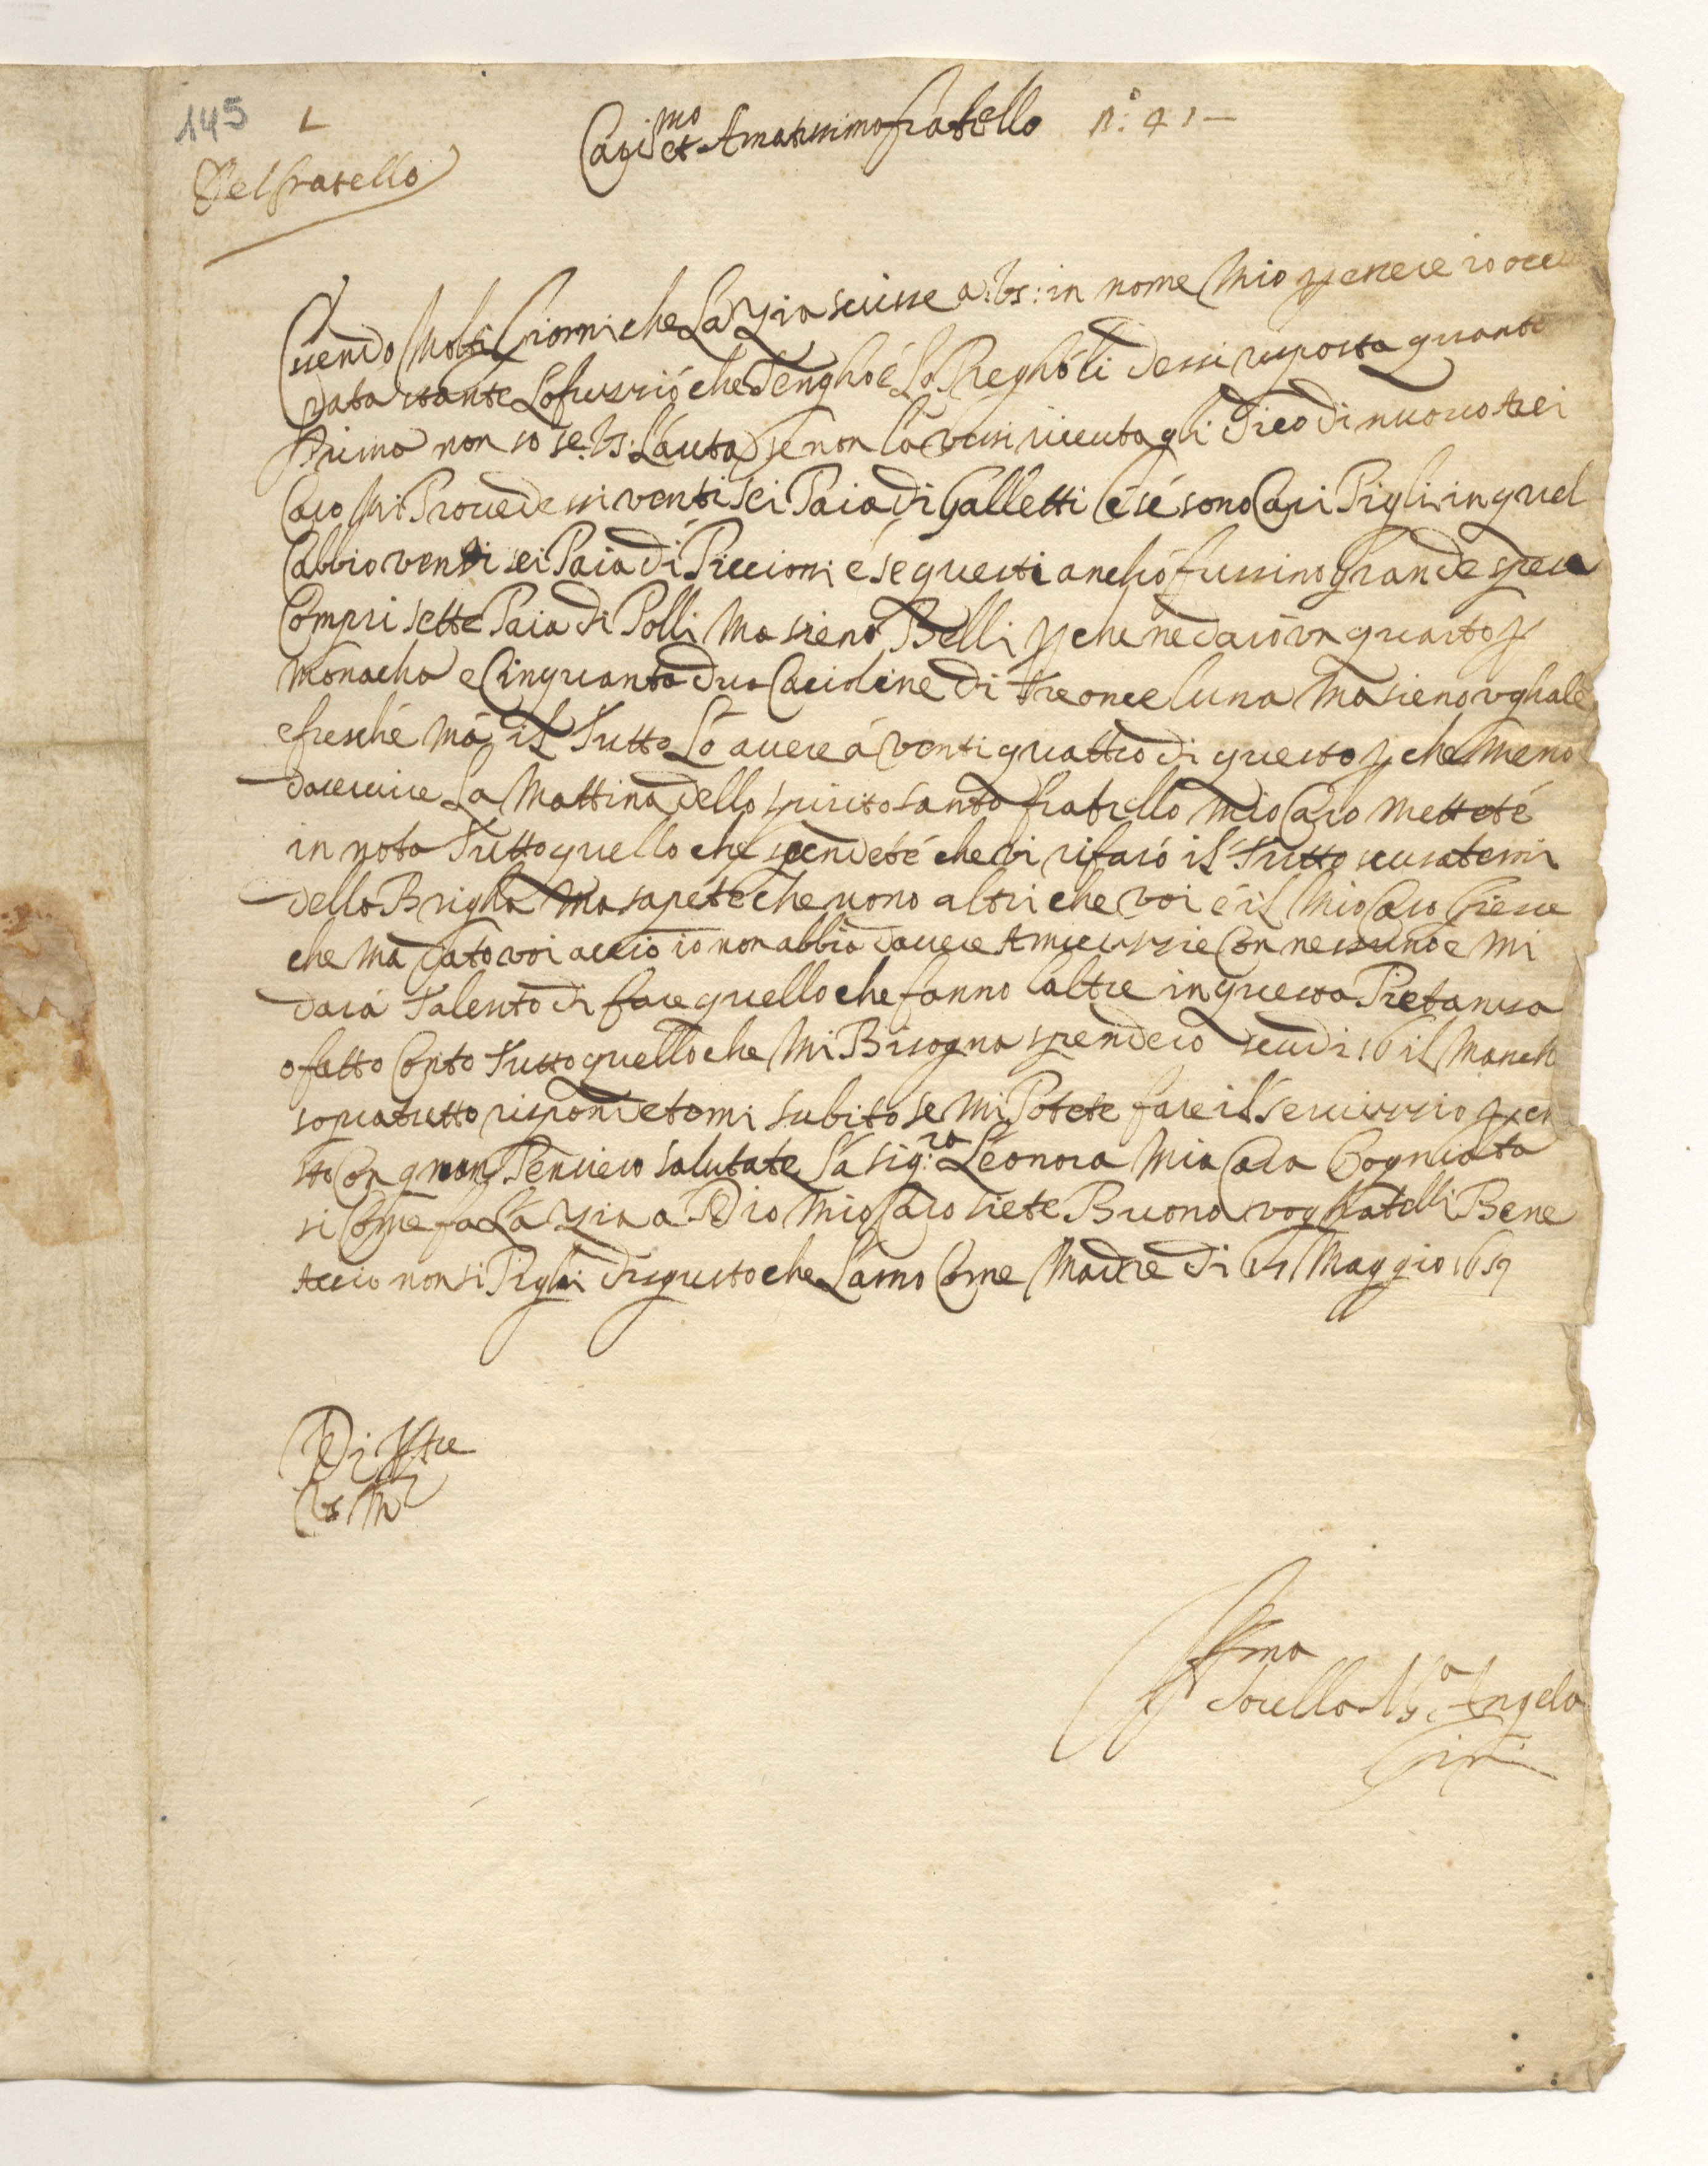 145
Del fratello
Cariss.mo et Amatissimo fratello n.o 41 -
Essendo Molti Giorni che La Zia scrisse a: Vs: in nome Mio per essere io occu
data stante L'ofurzió che Tengho é Lo Pregho li dessi risposta quanto
Prima non so se: Vs: L'auta se non l'avessi riceuta gli dico di nuovo Arei
Caro Mi Provedessi venti sei Paia di Galletti é sé sono Cari Pigli in quel
Cabbio venti sei Paia di Piccioni é se questi anchó fussino grande spesa
Compri sette Paia di Polli Ma sieno Belli perche ne daró un quarto per
Monacha e Cinquanta dua Cacioline di tre once l'una Ma sieno ughale
e fresché Má il Tutto Ló avere á venti quattro di questo perche Meno
da servire La Mattina dello spirito santo fratello Mio Caro Metteté
in nota Tutto quello che spendeté che vi rifaró il Tutto scusatemi
della Brigha Ma sapete che nono altri che voi é il Mio Caro Giesue
che Má Dato voi accio io non abbia d'avere Amicizzie Con nessuno é Mi
dará Talento di fare quello che fanno l'altre in questa Pietanza
o fatto Conto Tutto quello che Mi Bisogna spendero scudi 16 il Manch
sopratutto rispondetemi subito se Mi Potete fare il servizzio per
sto Con gran Pensiero salutate La sig.ra Leonora Mia Cara Cogniata
si Come fa La Zia a Dio Mio Caro siete Buono vogliateli Bene
accio non si Pigli disgusto che L'amo Come Madre di 14 Maggio 1659
Di Vs Ill.re
Vs M.
Aff.ma
Sorella M.a Angela
Cini